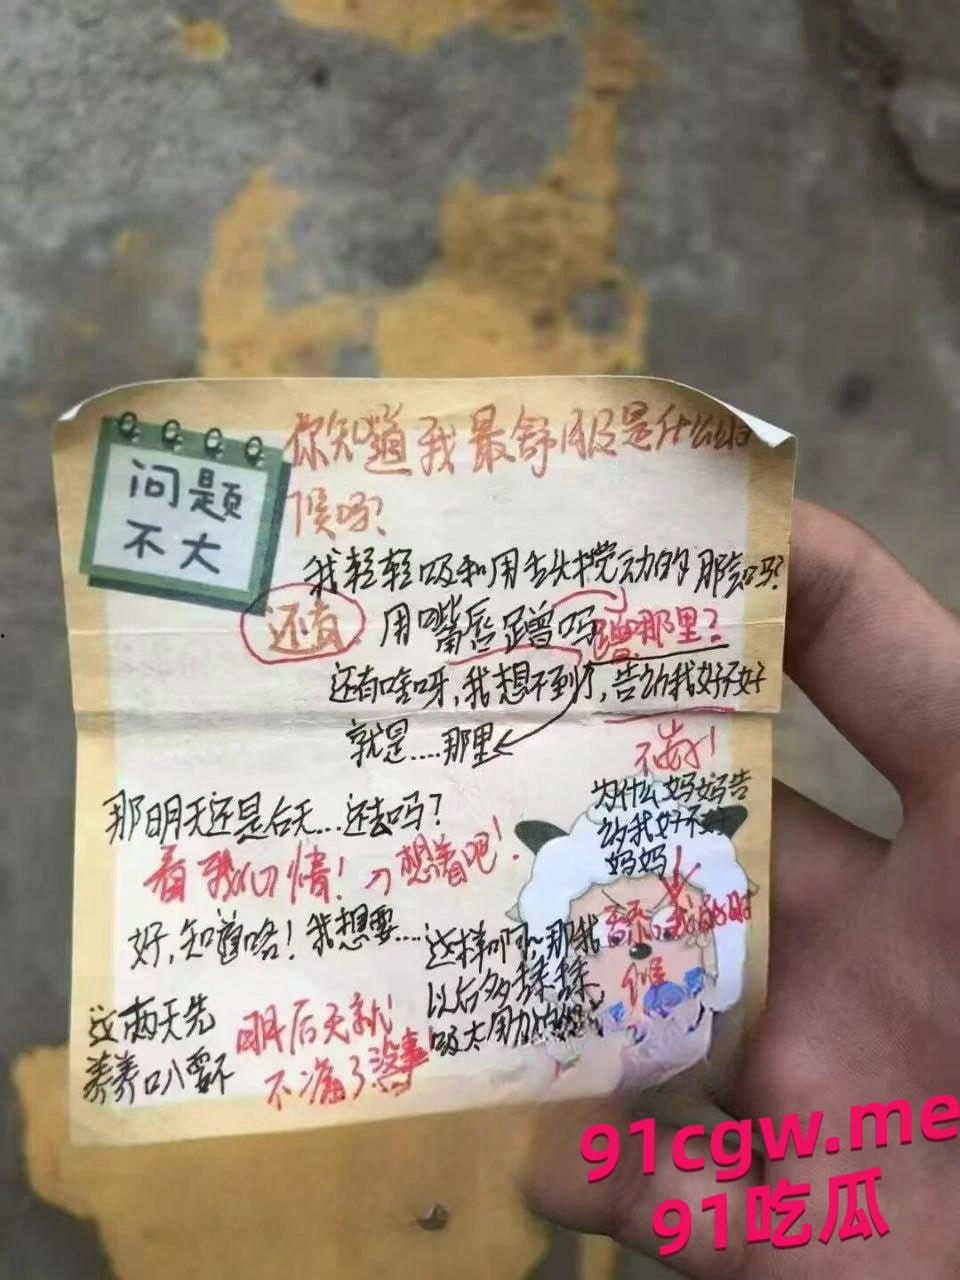 问题
不大
你知道我最舒服是什么时
候吗?
我轻轻吸和用舌头搅动的那会吗?
还有 用嘴唇蹭吗 蹭那里?
还有啥呀,我想不到了,告诉我好不好
就是....那里
不嘛!
为什么妈妈告
诉我好不好
妈妈
那明天还是后天...还去吗?
看我心情! 想着吧!
好,知道咯!我想要....
舔我的时
候
这样啊~那我
以后多揉揉
吸太用力
这两天先
养养
明后天就
不痛了没事
91cgw.me
91吃瓜